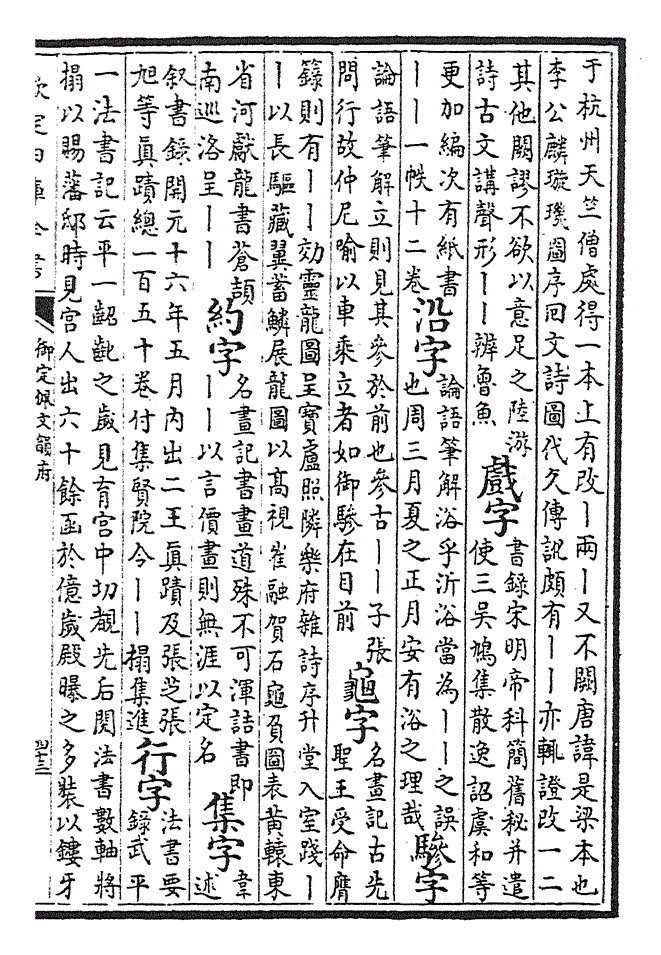 于杭州天竺僧處得一本上有改丨兩丨又不闕唐諱是梁本也
李公麟璇璣圖序回文詩圖代久傳訛頗有丨丨亦輒證改一二
其他闕謬不欲以意足之陸游
詩古文講聲形丨丨辨魯魚
戲字
書錄宋明帝科簡舊秘并遣
使三吳鳩集散逸詔虞和等
更加編次有紙書
丨丨一帙十二卷
沿字
論語筆解浴乎沂浴當為丨丨之誤
也周三月夏之正月安有浴之理哉
驂字
論語筆解立則見其參於前也參古丨丨子張
問行故仲尼喻以車乘立者如御驂在目前
龜字
名畫記古先
聖王受命膺
籙則有丨丨効靈龍圖呈寶盧照隣樂府雜詩序升堂入室踐丨
丨以長驅藏翼蓄鱗展龍圖以高視崔融賀石龜負圖表黄轅東
省河獻龍書蒼頡
南巡洛呈丨丨
約字
名畫記書畫道殊不可渾詰書即
丨丨以言價畫則無涯以定名
集字
韋
述
叙書錄開元十六年五月內出二王眞蹟及張芝張
旭等眞蹟總一百五十卷付集賢院今丨丨搨集進
行字
法書要
錄武平
一法書記云平一齠齔之歲見育宫中切覩先后閱法書數軸將
搨以賜藩邸時見宫人出六十餘函於億歲殿曝之多裝以鏤牙
欽定四庫全書
御定佩文韻府